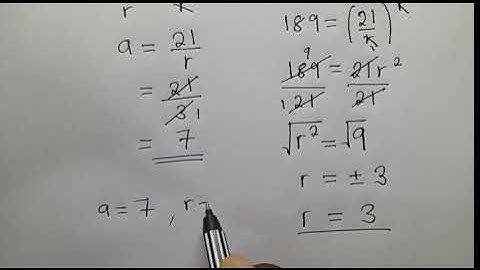 r r
a = 21/r
= 21/3 1
= 7
a = 7 , r =
189 = (21/r)r
9 189/21 1 = 21r²/21
√r² = √9
r = ± 3
r = 3